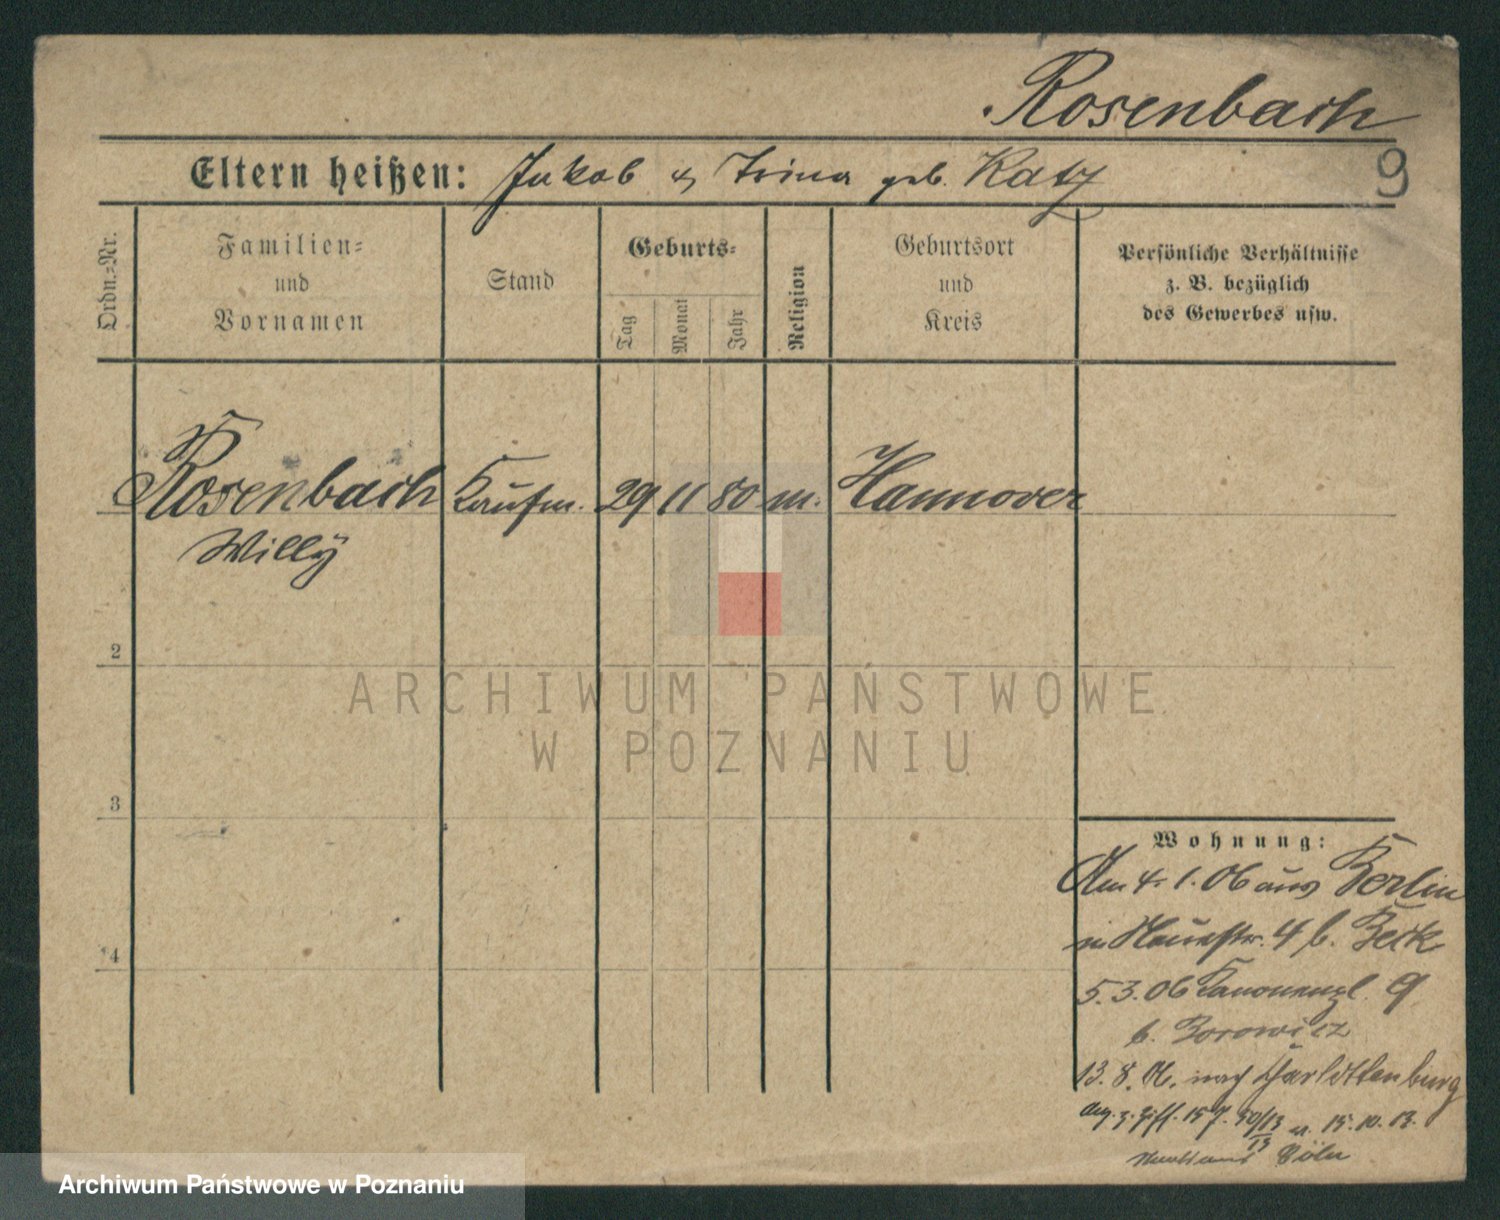 Rosenbach
9
Eltern heißen: Jakob & Irina geb. Katz
Ordn.=Nr.
Familien=
und
Vornamen
Stand
Geburts=
Tag
Monat
Jahr
Religion
Geburtsort
und
Kreis
Persönliche Verhältnisse
z. B. bezüglich
des Gewerbes usw.
Rosenbach Kaufm. 29 11 80 m. Hannover
Willy
2
3
4
ARCHIWUM PAŃSTWOWE
W POZNANIU
Wohnung:
Am 4. 1. 06 aus Berlin
in Neuestr. 4 b. Beck
5. 3. 06 Kanonenpl. 9
b. Borowicz
13. 8. 06. nach Charlottenburg
15.10.13.
Cöln
Archiwum Państwowe w Poznaniu